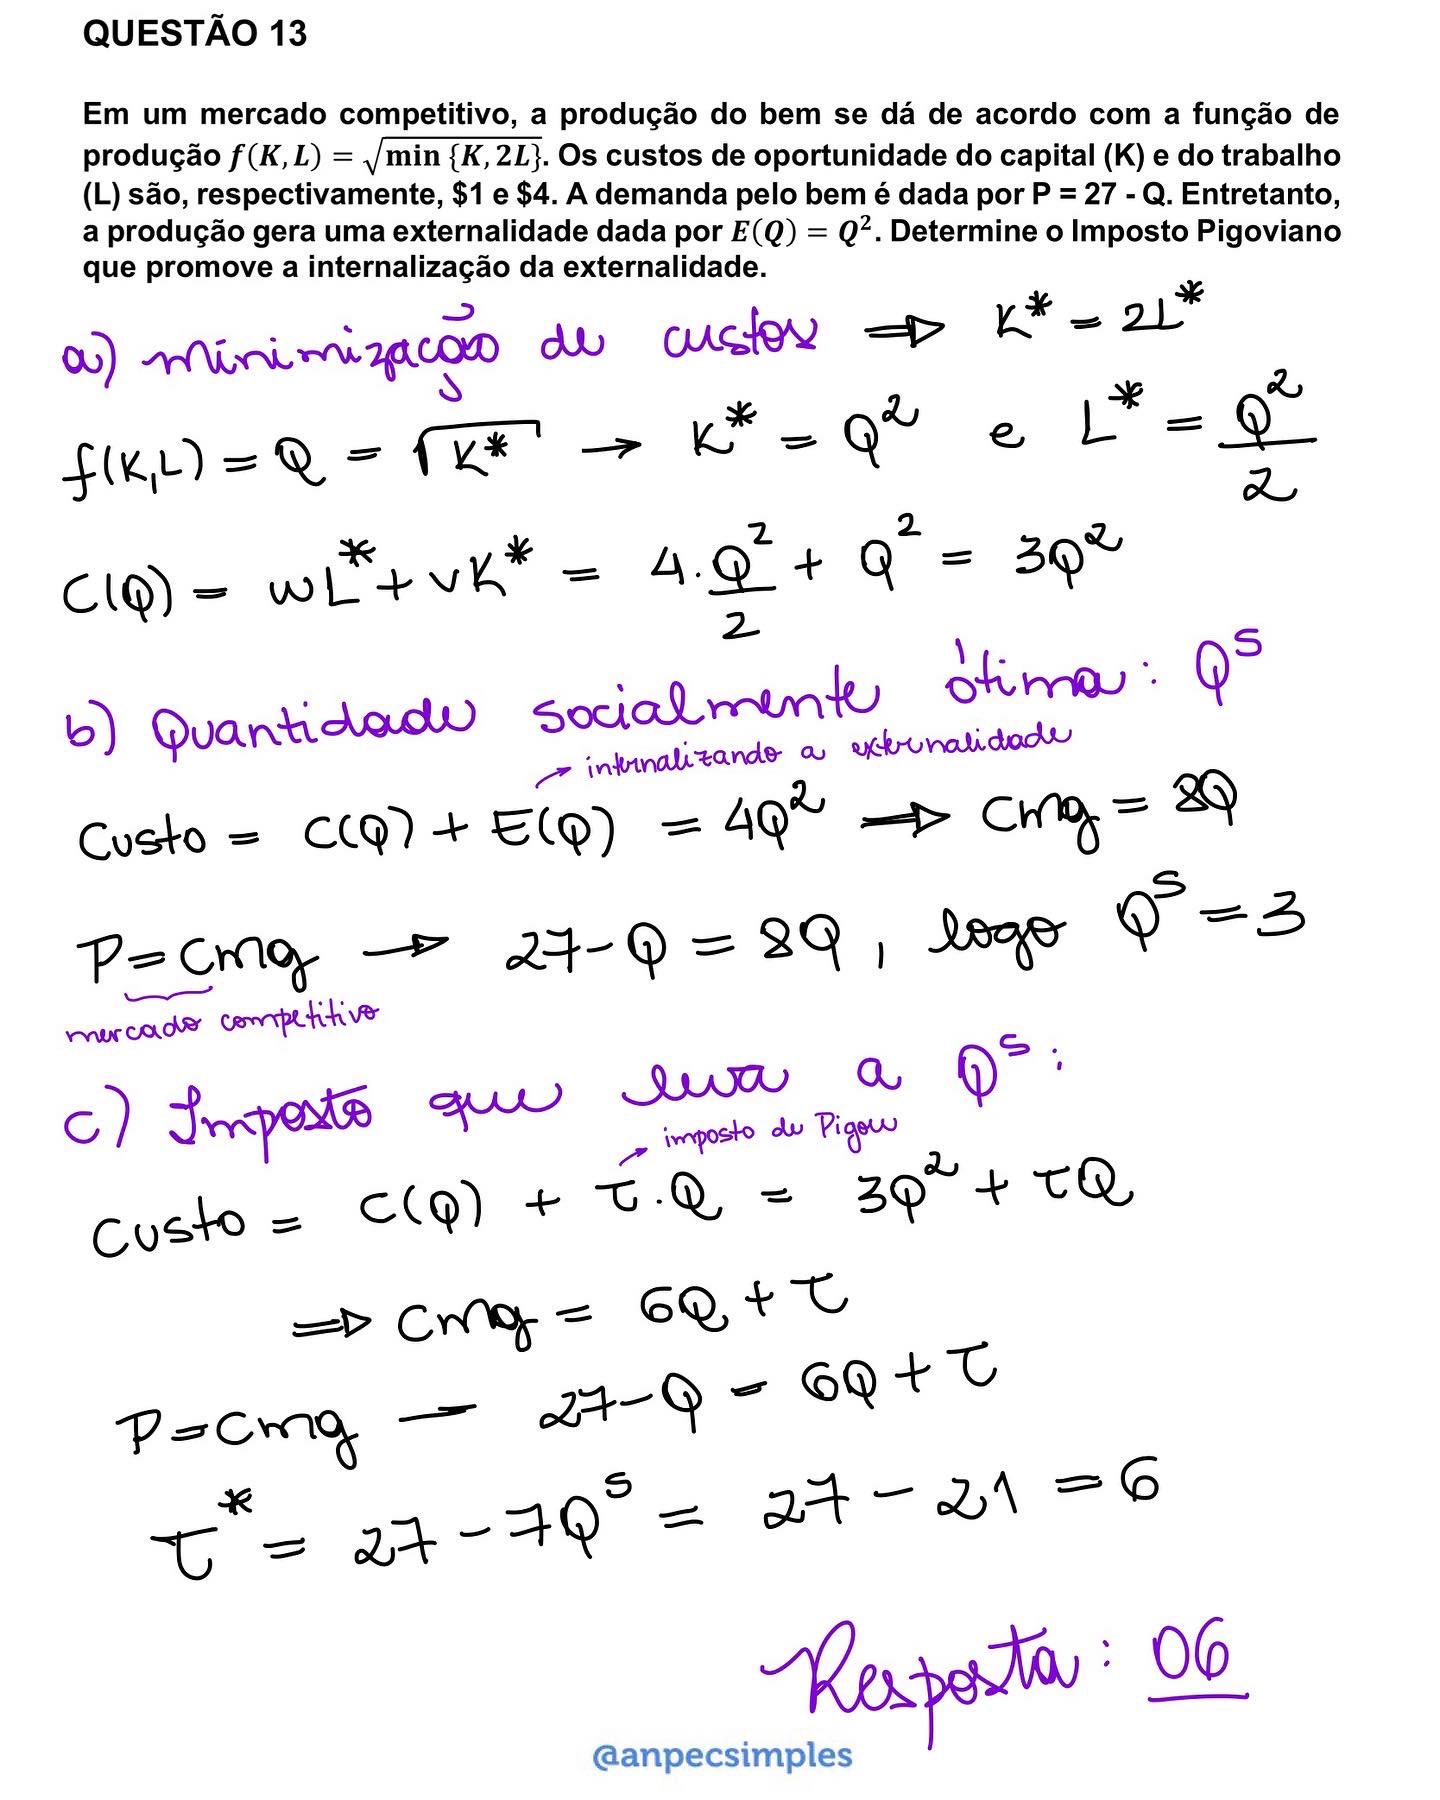 QUESTÃO 13
Em um mercado competitivo, a produção do bem se dá de acordo com a função de
produção f(K, L) = √min {K, 2L}. Os custos de oportunidade do capital (K) e do trabalho
(L) são, respectivamente, $1 e $4. A demanda pelo bem é dada por P = 27 - Q. Entretanto,
a produção gera uma externalidade dada por E(Q) = Q². Determine o Imposto Pigoviano
que promove a internalização da externalidade.
a) minimização de custos ⇒ K* = 2L*
f(K,L) = Q = √K* → K* = Q² e L* = Q²/2
C(Q) = wL* + vK* = 4.Q²/2 + Q² = 3Q²
b) Quantidade socialmente ótima: Qˢ
→ internalizando a externalidade
Custo = C(Q) + E(Q) = 4Q² ⇒ Cmg = 8Q
P = Cmg → 27 - Q = 8Q, logo Qˢ = 3
mercado competitivo
c) Imposto que leva a Qˢ:
→ imposto de Pigou
Custo = C(Q) + τ.Q = 3Q² + τQ
⇒ Cmg = 6Q + τ
P = Cmg — 27 - Q = 6Q + τ
τ* = 27 - 7Qˢ = 27 - 21 = 6
Resposta: 06
@anpecsimples